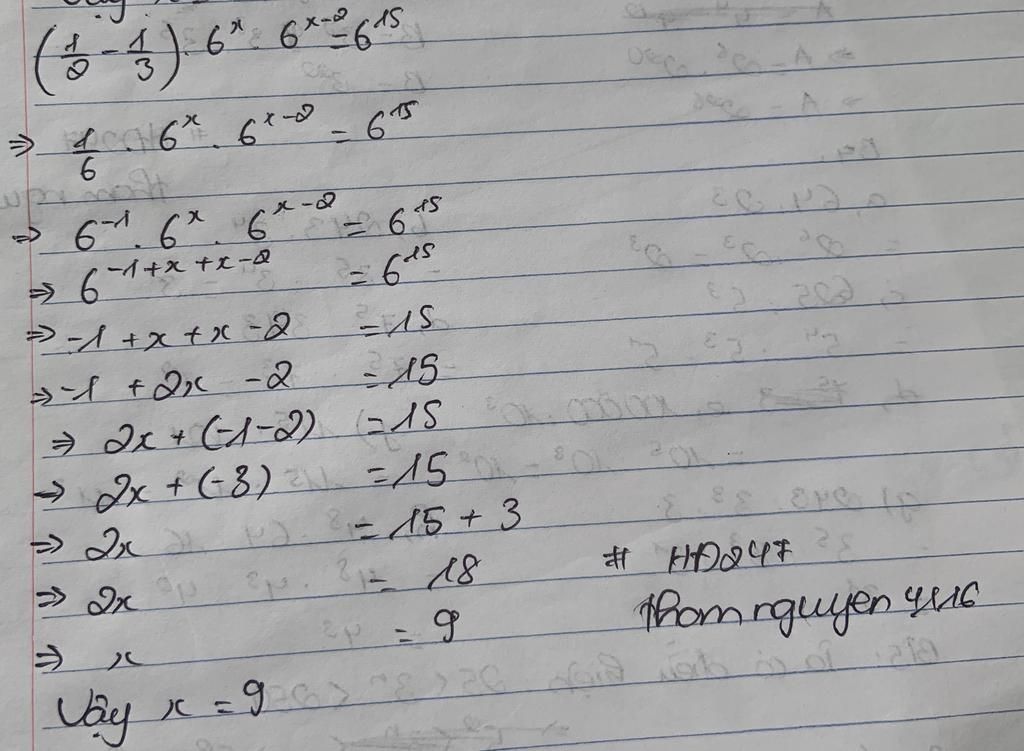 (1/2 - 1/3) . 6^x . 6^(x-2) = 6^15
⇒ 1/6 . 6^x . 6^(x-2) = 6^15
⇒ 6^(-1) . 6^x . 6^(x-2) = 6^15
⇒ 6^(-1+x+x-2) = 6^15
⇒ -1 + x + x - 2 = 15
⇒ -1 + 2x - 2 = 15
⇒ 2x + (-1-2) = 15
⇒ 2x + (-3) = 15
⇒ 2x = 15 + 3
⇒ 2x = 18
# HD247
⇒ x = 9
Vậy x = 9